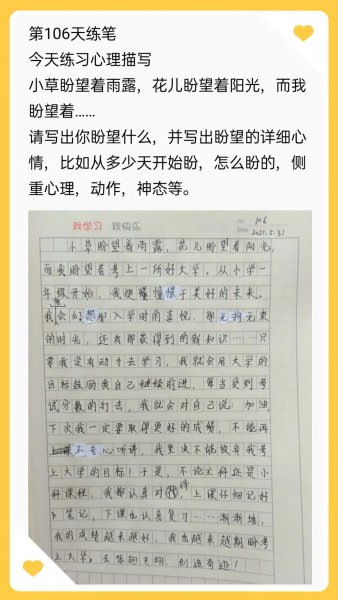 第106天练笔
今天练习心理描写
小草盼望着雨露，花儿盼望着阳光，而我
盼望着……
请写出你盼望什么，并写出盼望的详细心
情，比如从多少天开始盼，怎么盼的，侧
重心理，动作，神态等。
我学习 我快乐
No. 106
Date 2021.5.31
小草盼望着雨露，花儿盼望着阳光，
而我盼望着考上一所好大学。从小学一
年级开始，我便憧憬于美好的未来。
我会幻想那入学时的喜悦，那无拘无束
的时光，还有那获得到的新知识……只
要我没有动力去学习，我就会用大学的
目标鼓励我自己继续前进。每当受到考
试分数的打击，我就会对自己说：加油，
下次我一定要取得更好的成绩，不能再
不专心听讲，我坚决不能放弃我考
上大学的目标！于是，不论主科还是小
科课程，我都认真对待，上课仔细记好
笔记，下课也认真复习……渐渐地，
我的成绩越来越好，我也越来越期盼考
上大学，去展翅飞翔，创造奇迹！